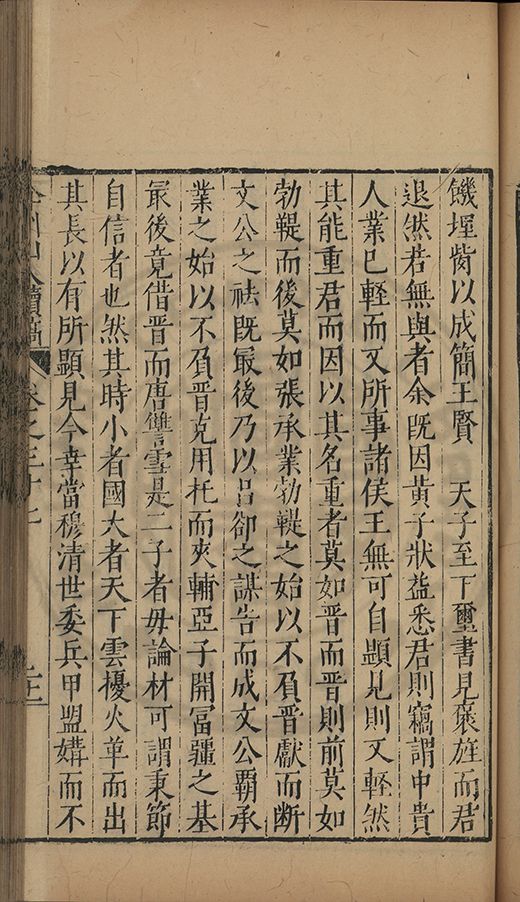 饑墐胔以成簡王賢　天子至下璽書見褒旌而君
退然若無與者余既因黃子狀益悉君則竊謂中貴
人業已輕而又所事諸侯王無可自顯見則又輕然
其能重君而因以其名重者莫如晉而晉則前莫如
勃鞮而後莫如張承業勃鞮之始以不負晉獻而斷
文公之袪既最後乃以呂郤之謀告而成文公覇承
業之始以不負晉克用托而夾輔亞子開冨疆之基
最後竟借晉而唐讐雪是二子者毋論材可謂秉節
自信者也然其時小者國大者天下雲擾火革而出
其長以有所顯見今幸當穆清世委兵甲盟媾而不
山人續稿 卷之三十七